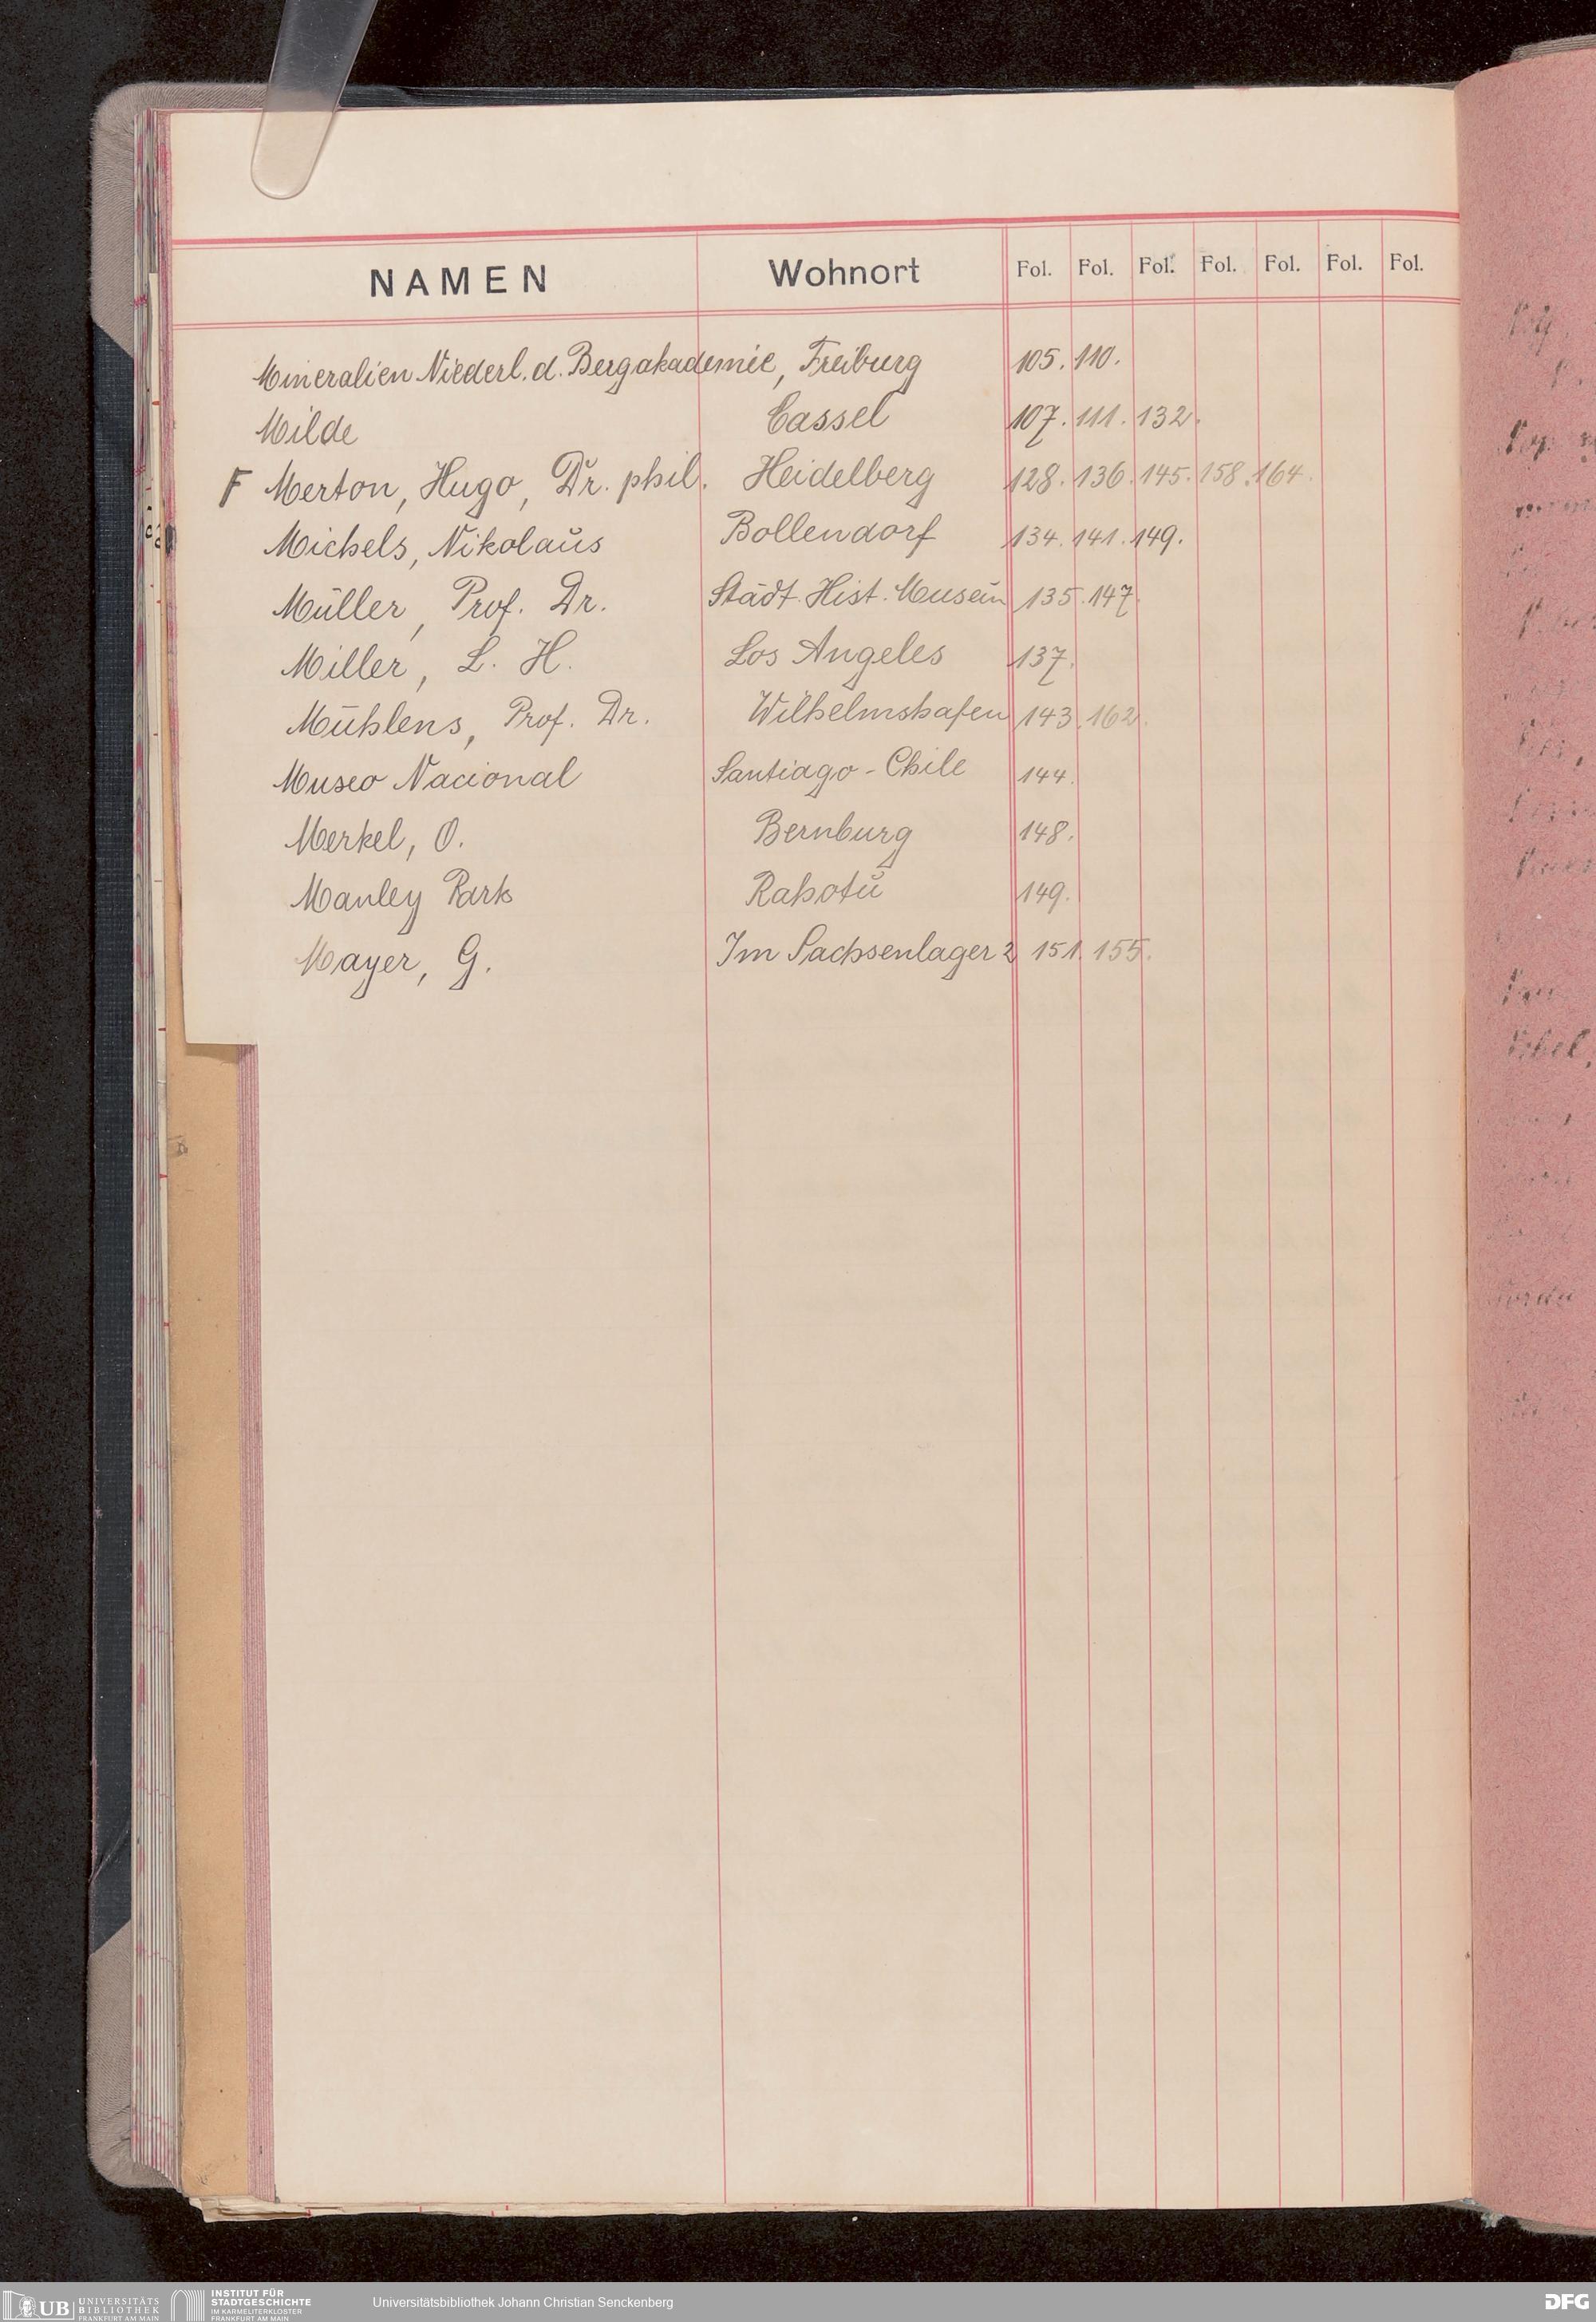 NAMEN Wohnort Fol. Fol. Fol. Fol. Fol. Fol. Fol.
Mineralien Niederl. d. Bergakademie, Freiburg 105. 110.
Milde Cassel 107. 111. 132.
F Merton, Hugo, Dr. phil. Heidelberg 128. 136. 145. 158. 164.
Michels, Nikolaus Bollendorf 134. 141. 149.
Müller, Prof. Dr. Städt. Hist. Museum 135. 147.
Miller, L. H. Los Angeles 137.
Mühlens, Prof. Dr. Wilhelmshafen 143. 162.
Museo Nacional Santiago - Chile 144.
Merkel, O. Bernburg 148.
Manley Park Rahotu 149.
Mayer, G. Im Sachsenlager 2 151. 155.
UB UNIVERSITÄTS BIBLIOTHEK FRANKFURT AM MAIN
INSTITUT FÜR STADTGESCHICHTE IM KARMELITERKLOSTER FRANKFURT AM MAIN
Universitätsbibliothek Johann Christian Senckenberg
DFG